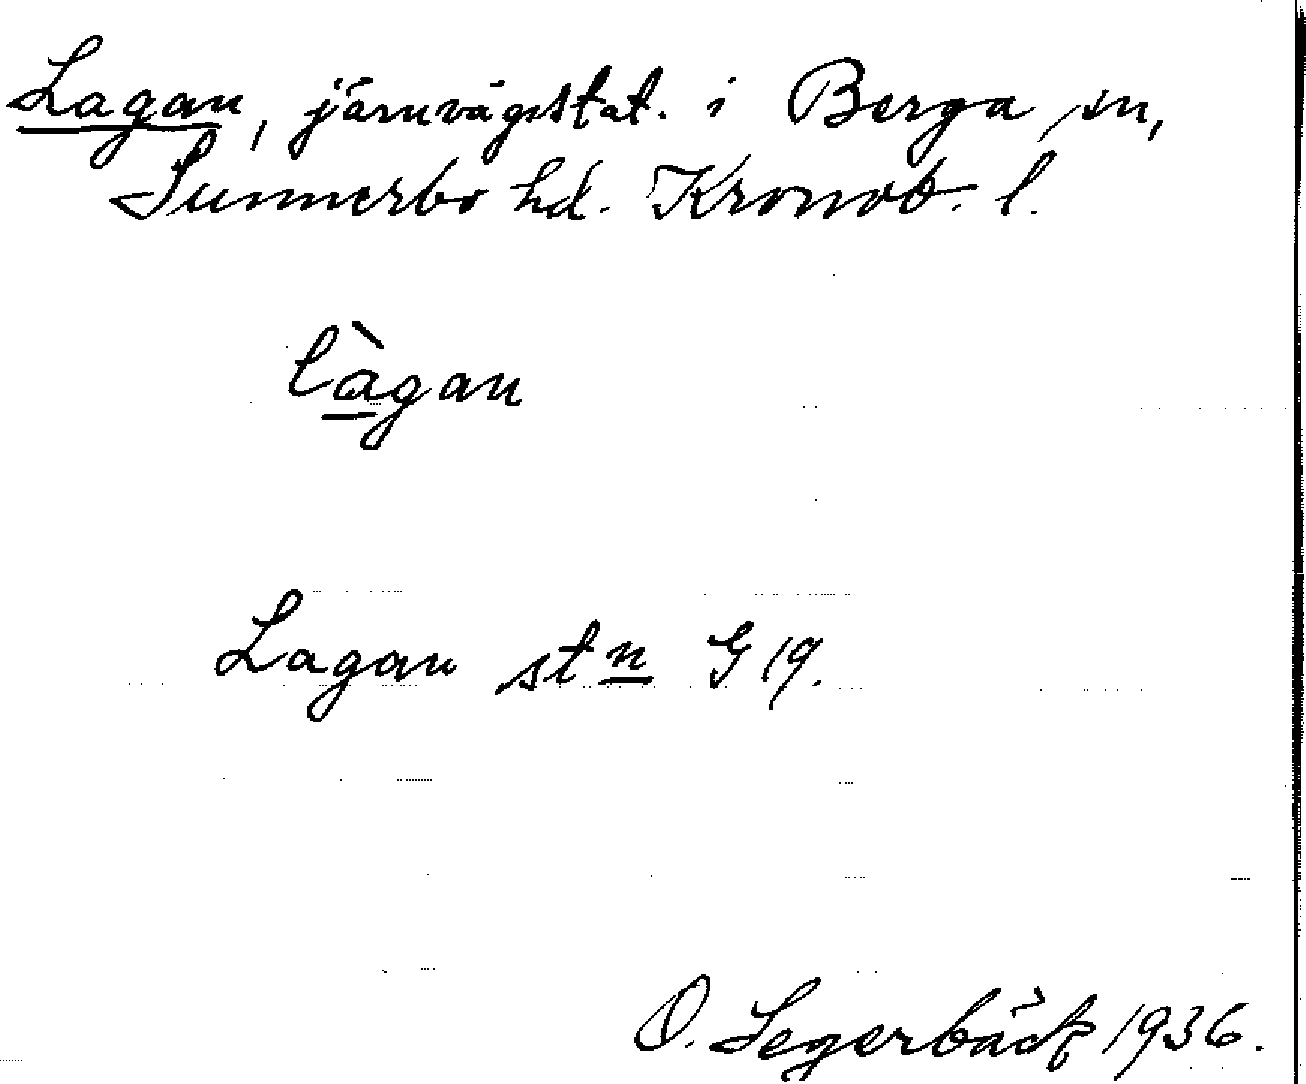 Lagan, järnvägsstat. i Berga sn,
Sunnerbo hd. Kronob. l.
làgan
Lagan stn G 19.
O. Segerbäck 1936.